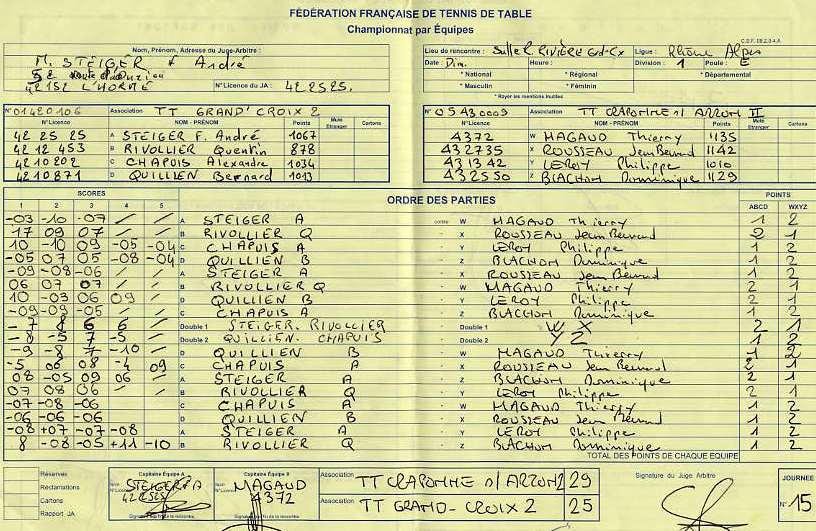 FÉDÉRATION FRANÇAISE DE TENNIS DE TABLE
Championnat par Équipes
C.D.F. 08.2.3.4.A
Nom, Prénom, Adresse du Juge-Arbitre :
M. STEIGER F André
52
42152 L'HORME
N°Licence du JA : 422525.
Lieu de rencontre : Salle R. RIVIÈRE Gd-Cx Ligue : Rhône Alpes
Date : Dim. Heure : Division : 1 Poule : E
* National * Régional * Départemental
* Masculin * Féminin
* Rayer les mentions inutiles
N° 01420106 Association TT GRAND'CROIX 2
N°Licence NOM - PRÉNOM Points Mute Etranger Cartons
42 25 25 A STEIGER F. André 1067
42 12 453 B RIVOLLIER Quentin 878
4210202 C CHAPUIS Alexandre 1034
4210871 D QUILLIEN Bernard 1013
N° 05430003 Association TT CRAPONNE S/ ARZON II
N°Licence NOM - PRÉNOM Points Mute Etranger Cartons
4372 W MAGAUD Thierry 1135
432735 X ROUSSEAU Jean Bernard 1142
431342 Y LEROY Philippe 1010
432550 Z BLACHON Dominique 1129
SCORES ORDRE DES PARTIES POINTS
1 2 3 4 5 ABCD WXYZ
-03 -10 -07 / / A STEIGER A contre W MAGAUD Thierry 1 2
17 09 07 / / B RIVOLLIER Q X ROUSSEAU Jean Bernard 2 1
10 -10 09 -05 -04 C CHAPUIS A Y LEROY Philippe 1 2
-05 07 05 -08 -04 D QUILLIEN B Z BLACHON Dominique 1 2
-09 -08 -06 / / A STEIGER A X ROUSSEAU Jean Bernard 1 2
06 07 07 / / B RIVOLLIER Q W MAGAUD Thierry 2 1
10 -03 06 09 / D QUILLIEN B Y LEROY Philippe 2 1
-09 -09 -05 / / C CHAPUIS A Z BLACHON Dominique 1 2
-7 8 6 6 / Double 1 STEIGER. RIVOLLIER Double 1 W X 2 1
-8 -5 7 -5 / Double 2 QUILLIEN. CHAPUIS Double 2 Y Z 1 2
-9 -8 7 -10 / D QUILLIEN B W MAGAUD Thierry 1 2
-5 06 08 -4 09 C CHAPUIS A X ROUSSEAU Jean Bernard 2 1
08 -05 09 06 / A STEIGER A Z BLACHON Dominique 2 1
07 08 06 / / B RIVOLLIER Q Y LEROY Philippe 2 1
-07 -08 -06 C CHAPUIS A W MAGAUD Thierry 1 2
-06 -06 -06 D QUILLIEN B X ROUSSEAU Jean Bernard 1 2
-08 +07 -07 -08 A STEIGER A Y LEROY Philippe 1 2
8 -08 -05 +11 -10 B RIVOLLIER Q Z BLACHON Dominique 1 2
TOTAL DES POINTS DE CHAQUE EQUIPE
Réserves
Réclamations
Cartons
Rapport JA
Capitaine Équipe A
STEIGER A
422525
Capitaine Équipe X
MAGAUD
4372
Association TT CRAPONNE S/ ARZON 2 29
Association TT GRAND-CROIX 2 25
Signature du Juge Arbitre
JOURNÉE
N° 15